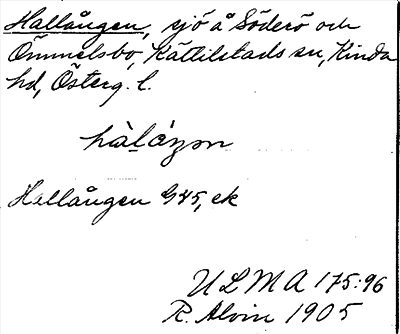 Hallången, sjö å Söderö och
Ömmelsbo, Kättilstads sn, Kinda
hd, Österg. l.
hàlåŋən
Hallången G45, ek
ULMA 175:96
R. Alvin 1905